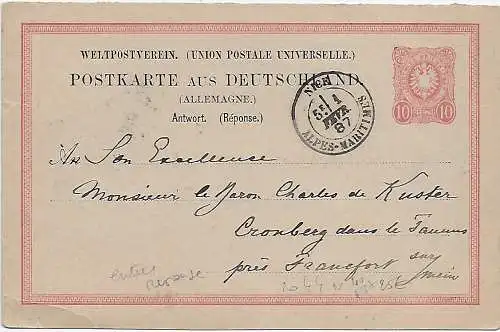 WELTPOSTVEREIN. (UNION POSTALE UNIVERSELLE.)
POSTKARTE AUS DEUTSCHLAND.
(ALLEMAGNE.)
Antwort. (Réponse.)
10 10
NICE
5E 1
FEVR
87
ALPES-MARITIMES
A Son Excellence
Monsieur le Baron Charles de Kuster
Cronberg dans le Taunus
près Francfort sur
Mein
entier
response